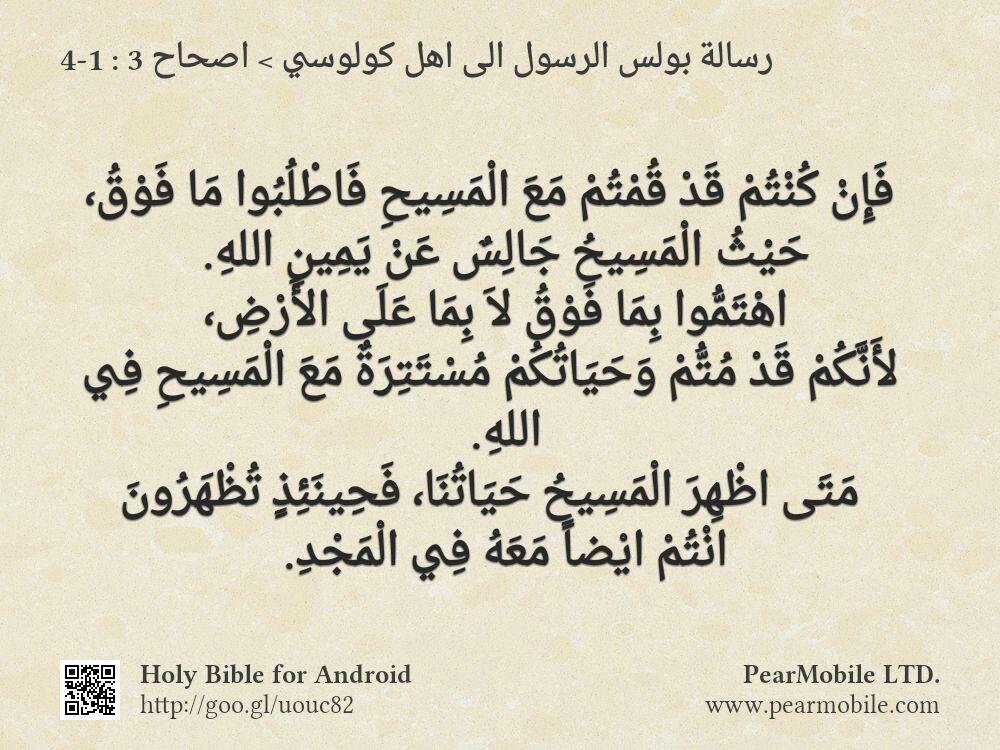 رسالة بولس الرسول الى اهل كولوسي > اصحاح 3 : 1-4
فَإِنْ كُنْتُمْ قَدْ قُمْتُمْ مَعَ الْمَسِيحِ فَاطْلُبُوا مَا فَوْقُ،
حَيْثُ الْمَسِيحُ جَالِسٌ عَنْ يَمِينِ اللهِ.
اهْتَمُّوا بِمَا فَوْقُ لاَ بِمَا عَلَى الأَرْضِ،
لأَنَّكُمْ قَدْ مُتُّمْ وَحَيَاتُكُمْ مُسْتَتِرَةٌ مَعَ الْمَسِيحِ فِي
اللهِ.
مَتَى اظْهِرَ الْمَسِيحُ حَيَاتُنَا، فَحِينَئِذٍ تُظْهَرُونَ
انْتُمْ ايْضاً مَعَهُ فِي الْمَجْدِ.
Holy Bible for Android
http://goo.gl/uouc82
PearMobile LTD.
www.pearmobile.com